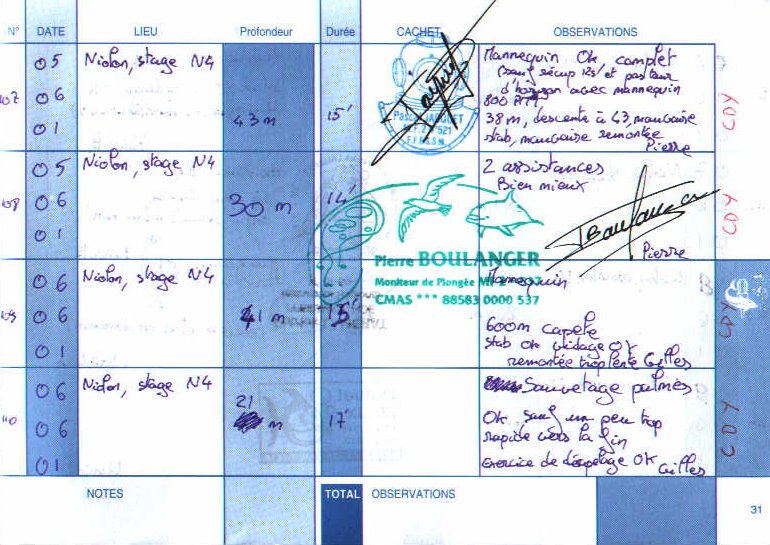 N° DATE LIEU Profondeur Durée CACHET OBSERVATIONS
107 05 06 01 Niolon, stage N4 43 m 15'
Mannequin OK, complet
sauf récup 12s et pas
d'horizon avec mannequin
800 PMT
38 m, descente à 43, mauvaise
stab, mauvaise remontée
Pierre
CDY
F.F.E.S.S.M.
108 05 06 01 Niolon, stage N4 30 m 14'
2 assistances
Bien mieux
Pierre
CDY
Pierre BOULANGER
Moniteur de Plongée
CMAS *** 88583 0000 537
109 06 06 01 Niolon, stage N4 41 m 15'
Mannequin
600m capelé
stab OK vidage OK
remontée trop lente Gilles
CDY
110 06 06 01 Niolon, stage N4 21 m 17'
Sauvetage palmes
OK sauf un peu trop
rapide vers la fin
Exercice de décapelage OK
Gilles
CDY
NOTES TOTAL OBSERVATIONS
31